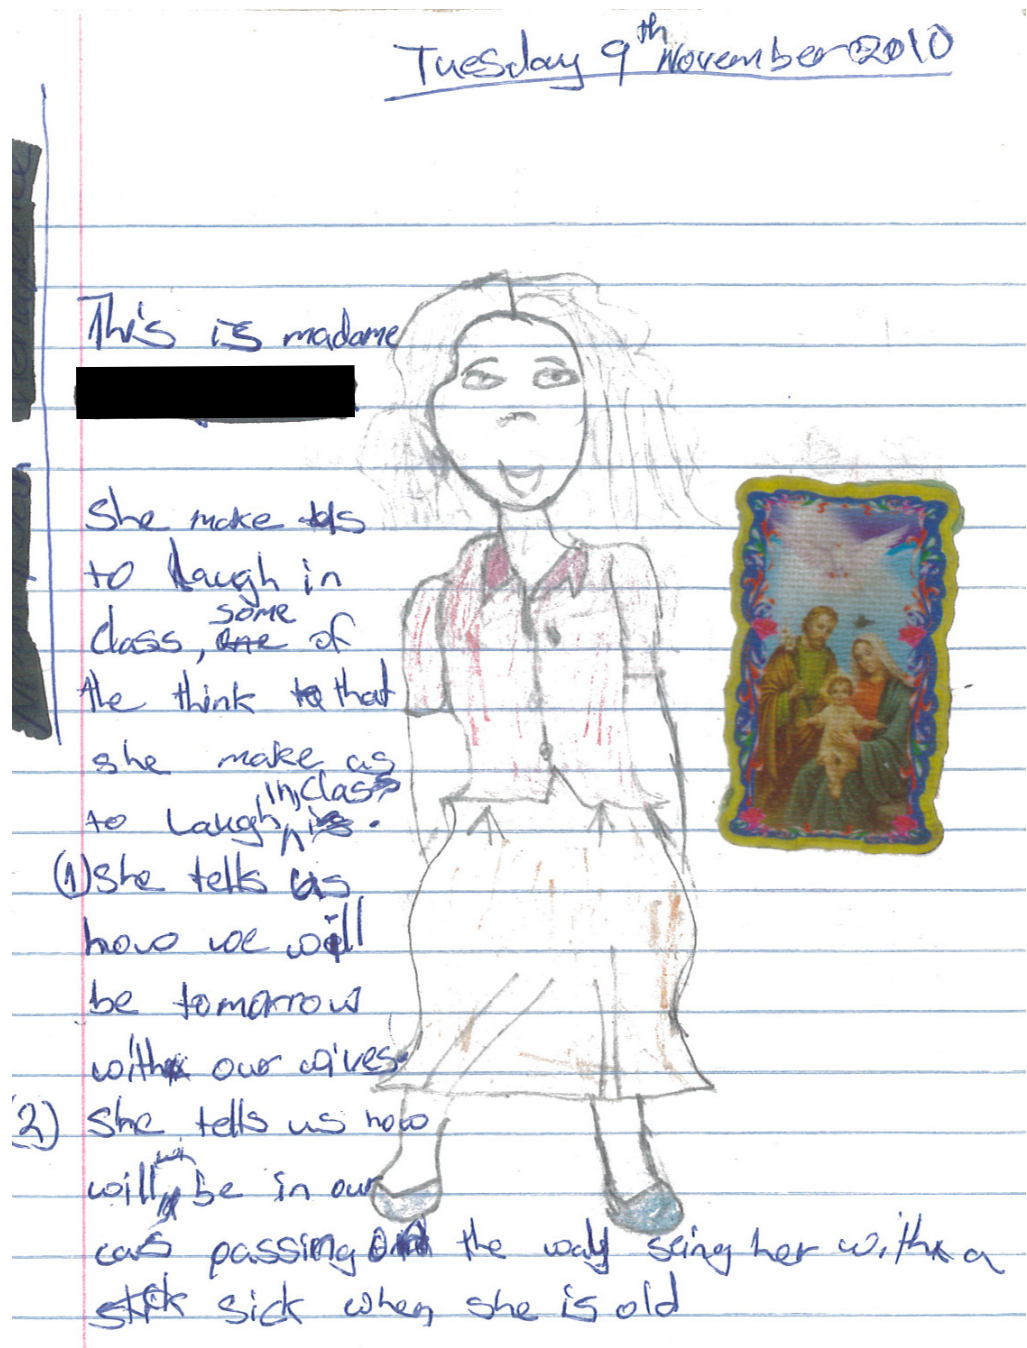 Tuesday 9th November 2010
This is madame
She make us
to laugh in
class, some of
the think that
she make as
to laugh in class.
(1) She tells us
how we will
be tomorrow
with our wives.
2) She tells us how
will we be in our
cars passing on the way seing her with a
sick when she is old